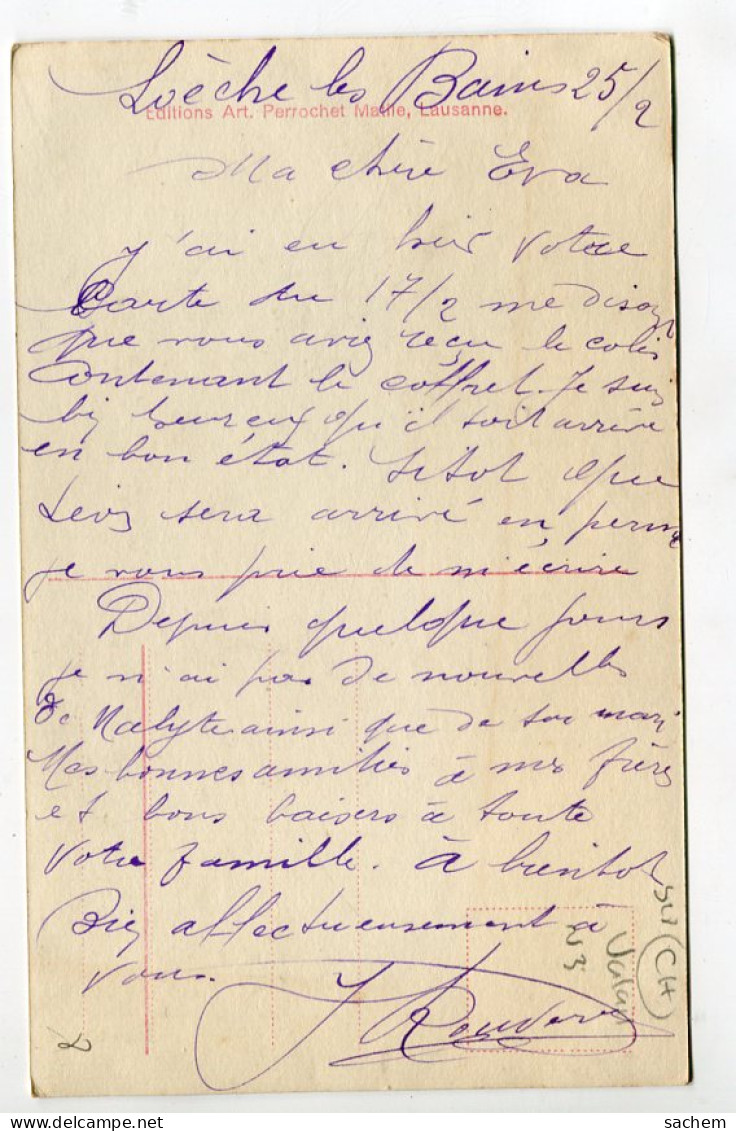 Loèche les Bains 25/2
Editions Art. Perrochet Matile, Lausanne.
Ma chère Eva
J'ai eu hier votre
Carte du 17/2 me disant
que vous aviez reçu le colis
contenant le coffret. Je suis
bien heureux qu'il soit arrivé
en bon état. Sitot que
Léon sera arrivé en perm
je vous prie de m'écrire
Depuis quelque jours
je n'ai pas de nouvelles
de ainsi que de son mari
Mes bonnes amitiés à mes frères
et bons baisers à toute
votre famille. à bientot
Bien affectueusement à
vous.
SU
CH
Valais
N3
sachem